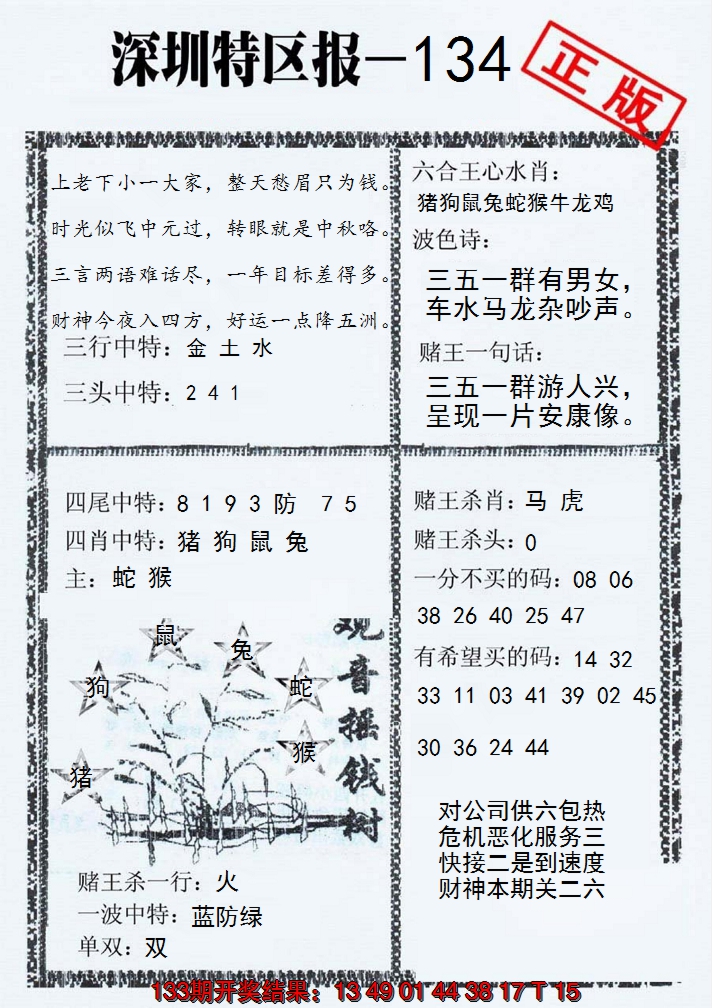 深圳特区报-134
正版
上老下小一大家，整天愁眉只为钱。
时光似飞中元过，转眼就是中秋咯。
三言两语难话尽，一年目标差得多。
财神今夜入四方，好运一点降五洲。
三行中特：金 土 水
三头中特：2 4 1
六合王心水肖：
猪狗鼠兔蛇猴牛龙鸡
波色诗：
三五一群有男女，
车水马龙杂吵声。
赌王一句话：
三五一群游人兴，
呈现一片安康像。
四尾中特：8 1 9 3 防 7 5
四肖中特：猪 狗 鼠 兔
主：蛇 猴
鼠
兔
狗
蛇
猴
猪
观音摇钱树
赌王杀一行：火
一波中特：蓝防绿
单双：双
赌王杀肖：马 虎
赌王杀头：0
一分不买的码：08 06
38 26 40 25 47
有希望买的码：14 32
33 11 03 41 39 02 45
30 36 24 44
对公司供六包热
危机恶化服务三
快接二是到速度
财神本期关二六
133期开奖结果：13 49 01 44 38 17 T 15